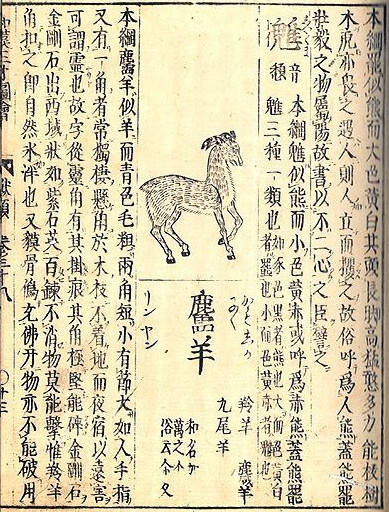 本綱羆似熊而大色黄白其頭長脚高猛憨多力能抜樹
木虎亦畏之遇人則人立而攫之故俗呼爲人熊蓋熊羆
壯毅之物屬陽故書以不二心之臣譬之
魋
音頽
本綱魋似熊而小色黄赤或呼爲赤熊蓋熊羆
魋三種一類也
如豕色黒者熊也大而色黄白
者羆也小而色黄赤者魋也
麢羊
かもしか
にく
リンヤン
羚羊 麢羊
九尾羊
和名加
萬之々
俗云久
本綱麢羊似羊而青色毛粗兩角短小有節大如人手指
又有一角者常獨棲懸角於木枝不着地而夜宿以遠害
可謂靈也故字從靈角有其掛痕其角極堅能碎金剛石
金剛石出西域狀如紫石英百錬不消物莫能擊惟羚羊
角扣之即自然冰泮也又貘骨僞充佛牙物亦不能破用
和漢三才圖會
獸類 巻三十八
〇十三